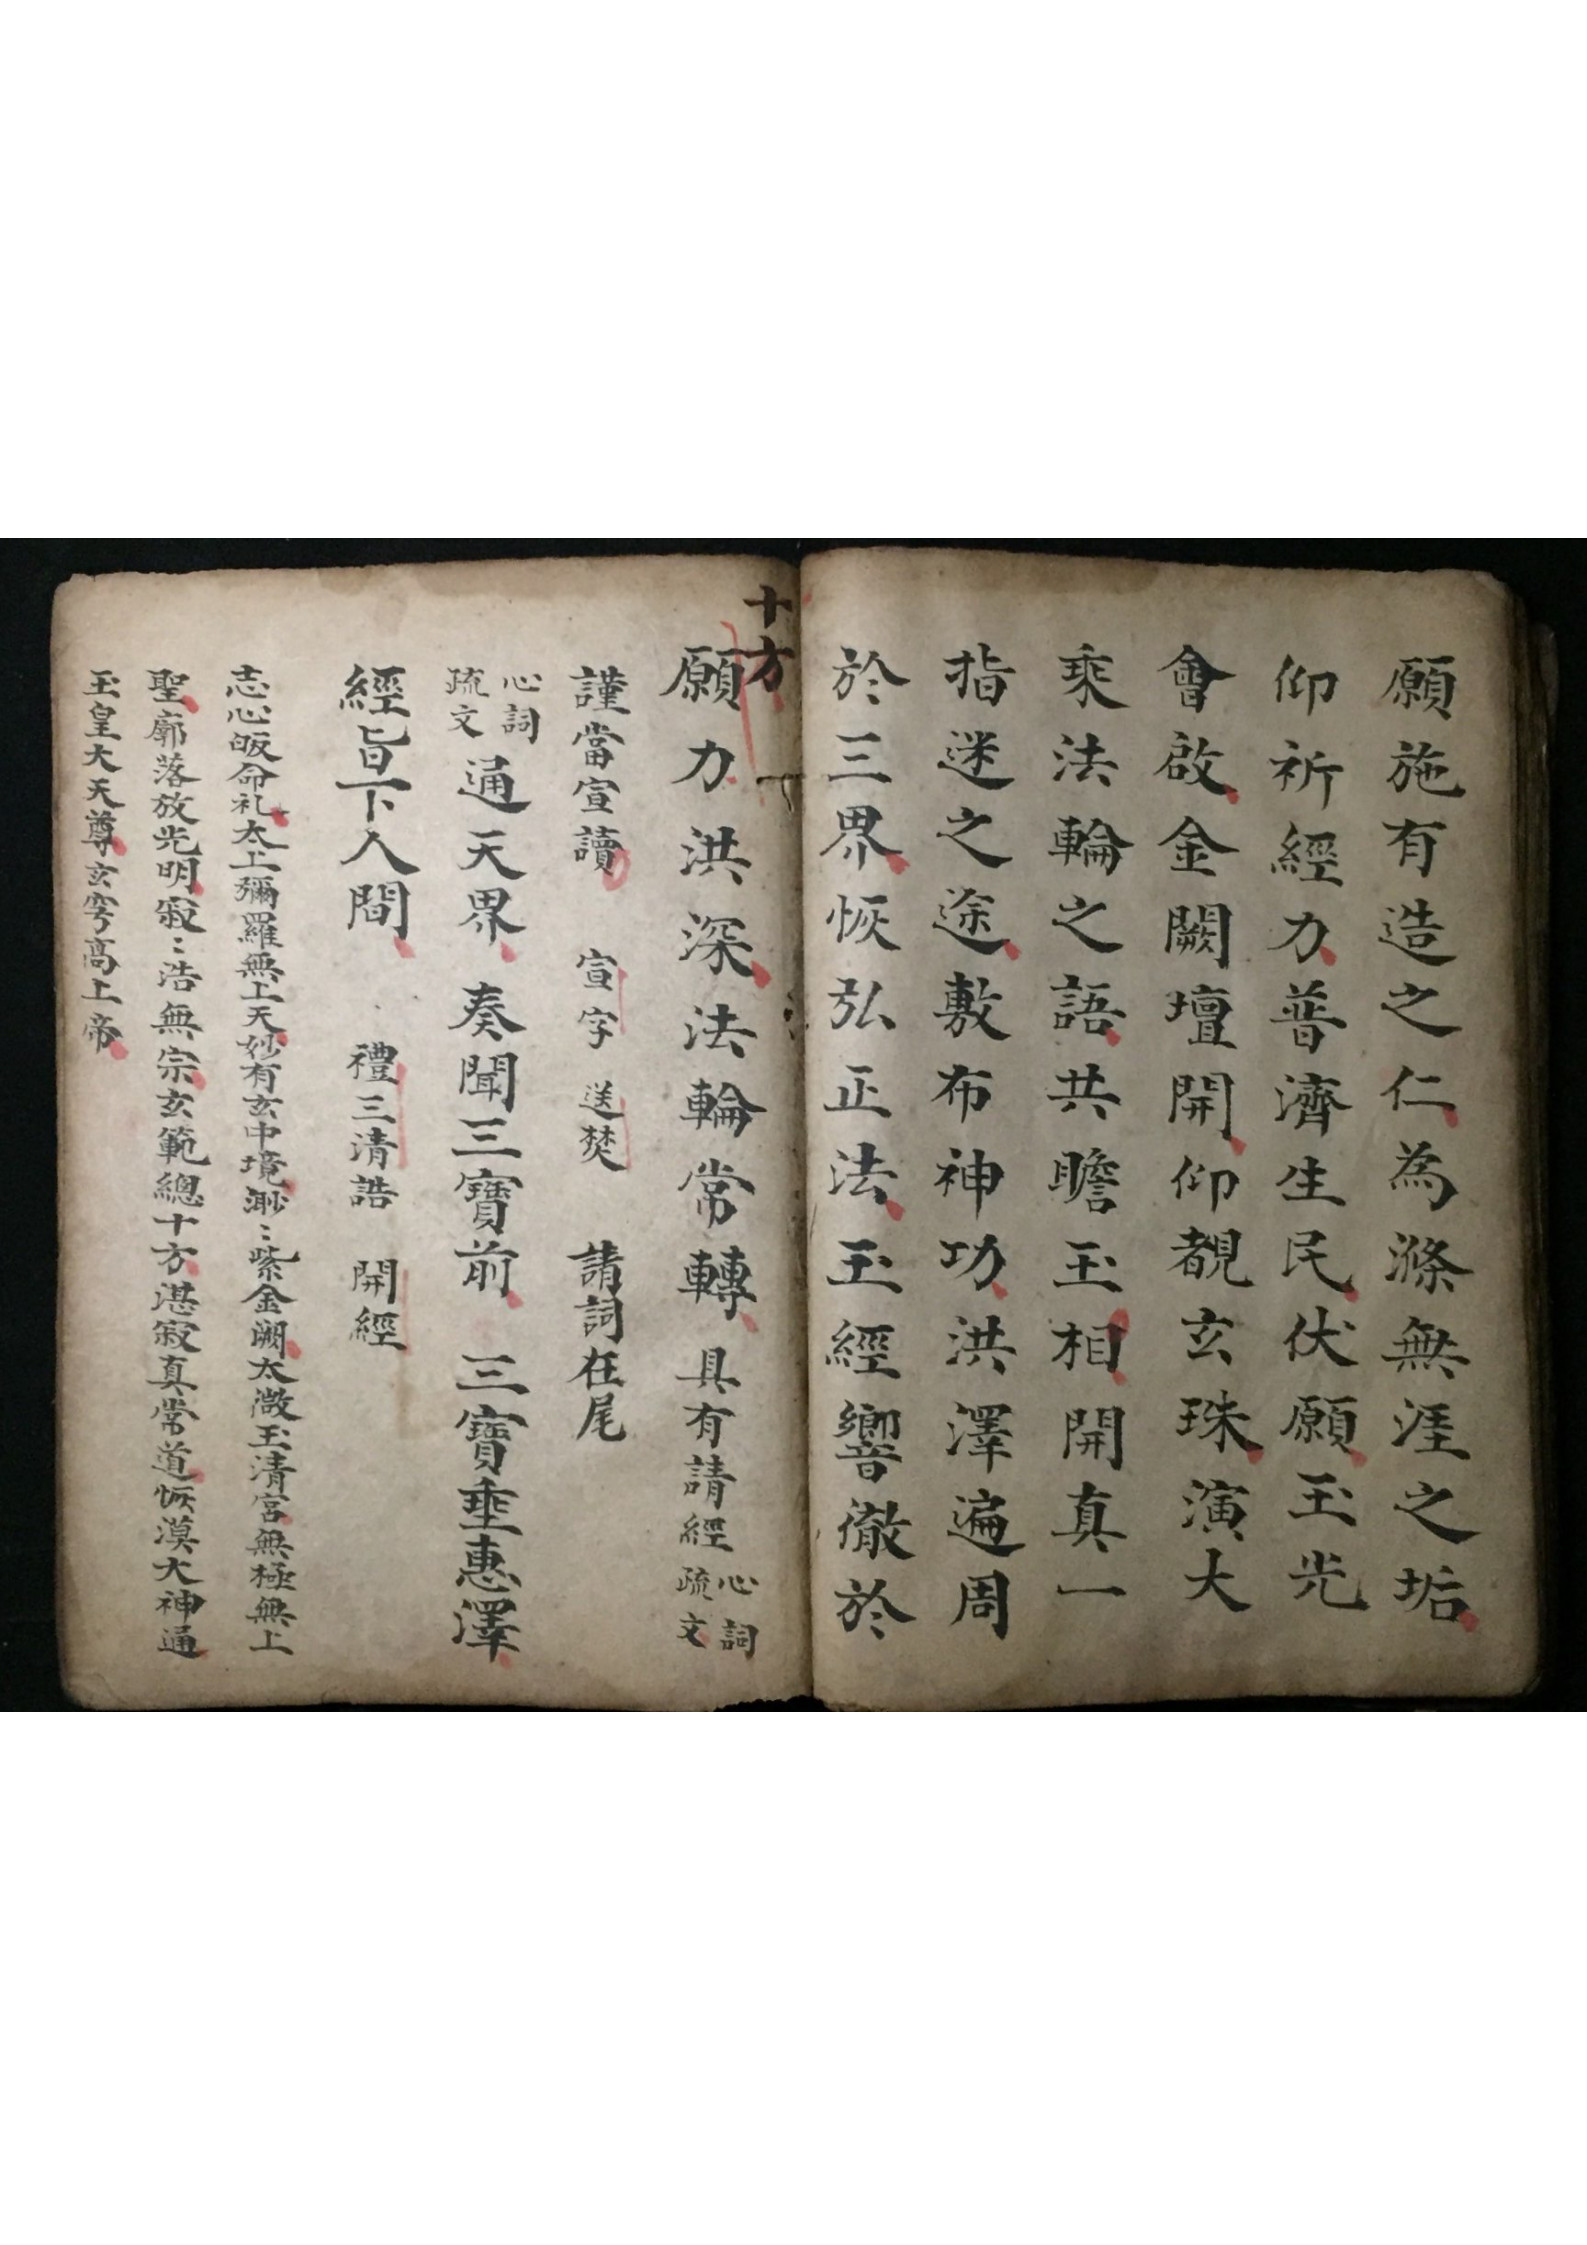 願施有造之仁為滌無涯之垢
仰祈經力普濟生民伏願玉光
會啟金闕壇開仰覩玄珠演大
乘法輪之語共瞻玉相開真一
指迷之途敷布神功洪澤遍周
於三界恢弘正法玉經響徹於
十方
願力洪深法輪常轉 具有請經 心詞 疏文
謹當宣讀 宣字 送焚 請詞在尾
心詞 疏文 通天界 奏聞三寶前 三寶垂惠澤
經旨下人間 禮三清誥 開經
志心皈命礼太上彌羅無上天妙有玄中境渺〻紫金闕太微玉清宮無極無上
聖廓落放光明寂〻浩無宗玄範總十方湛寂真常道恢漠大神通
玉皇大天尊玄穹高上帝